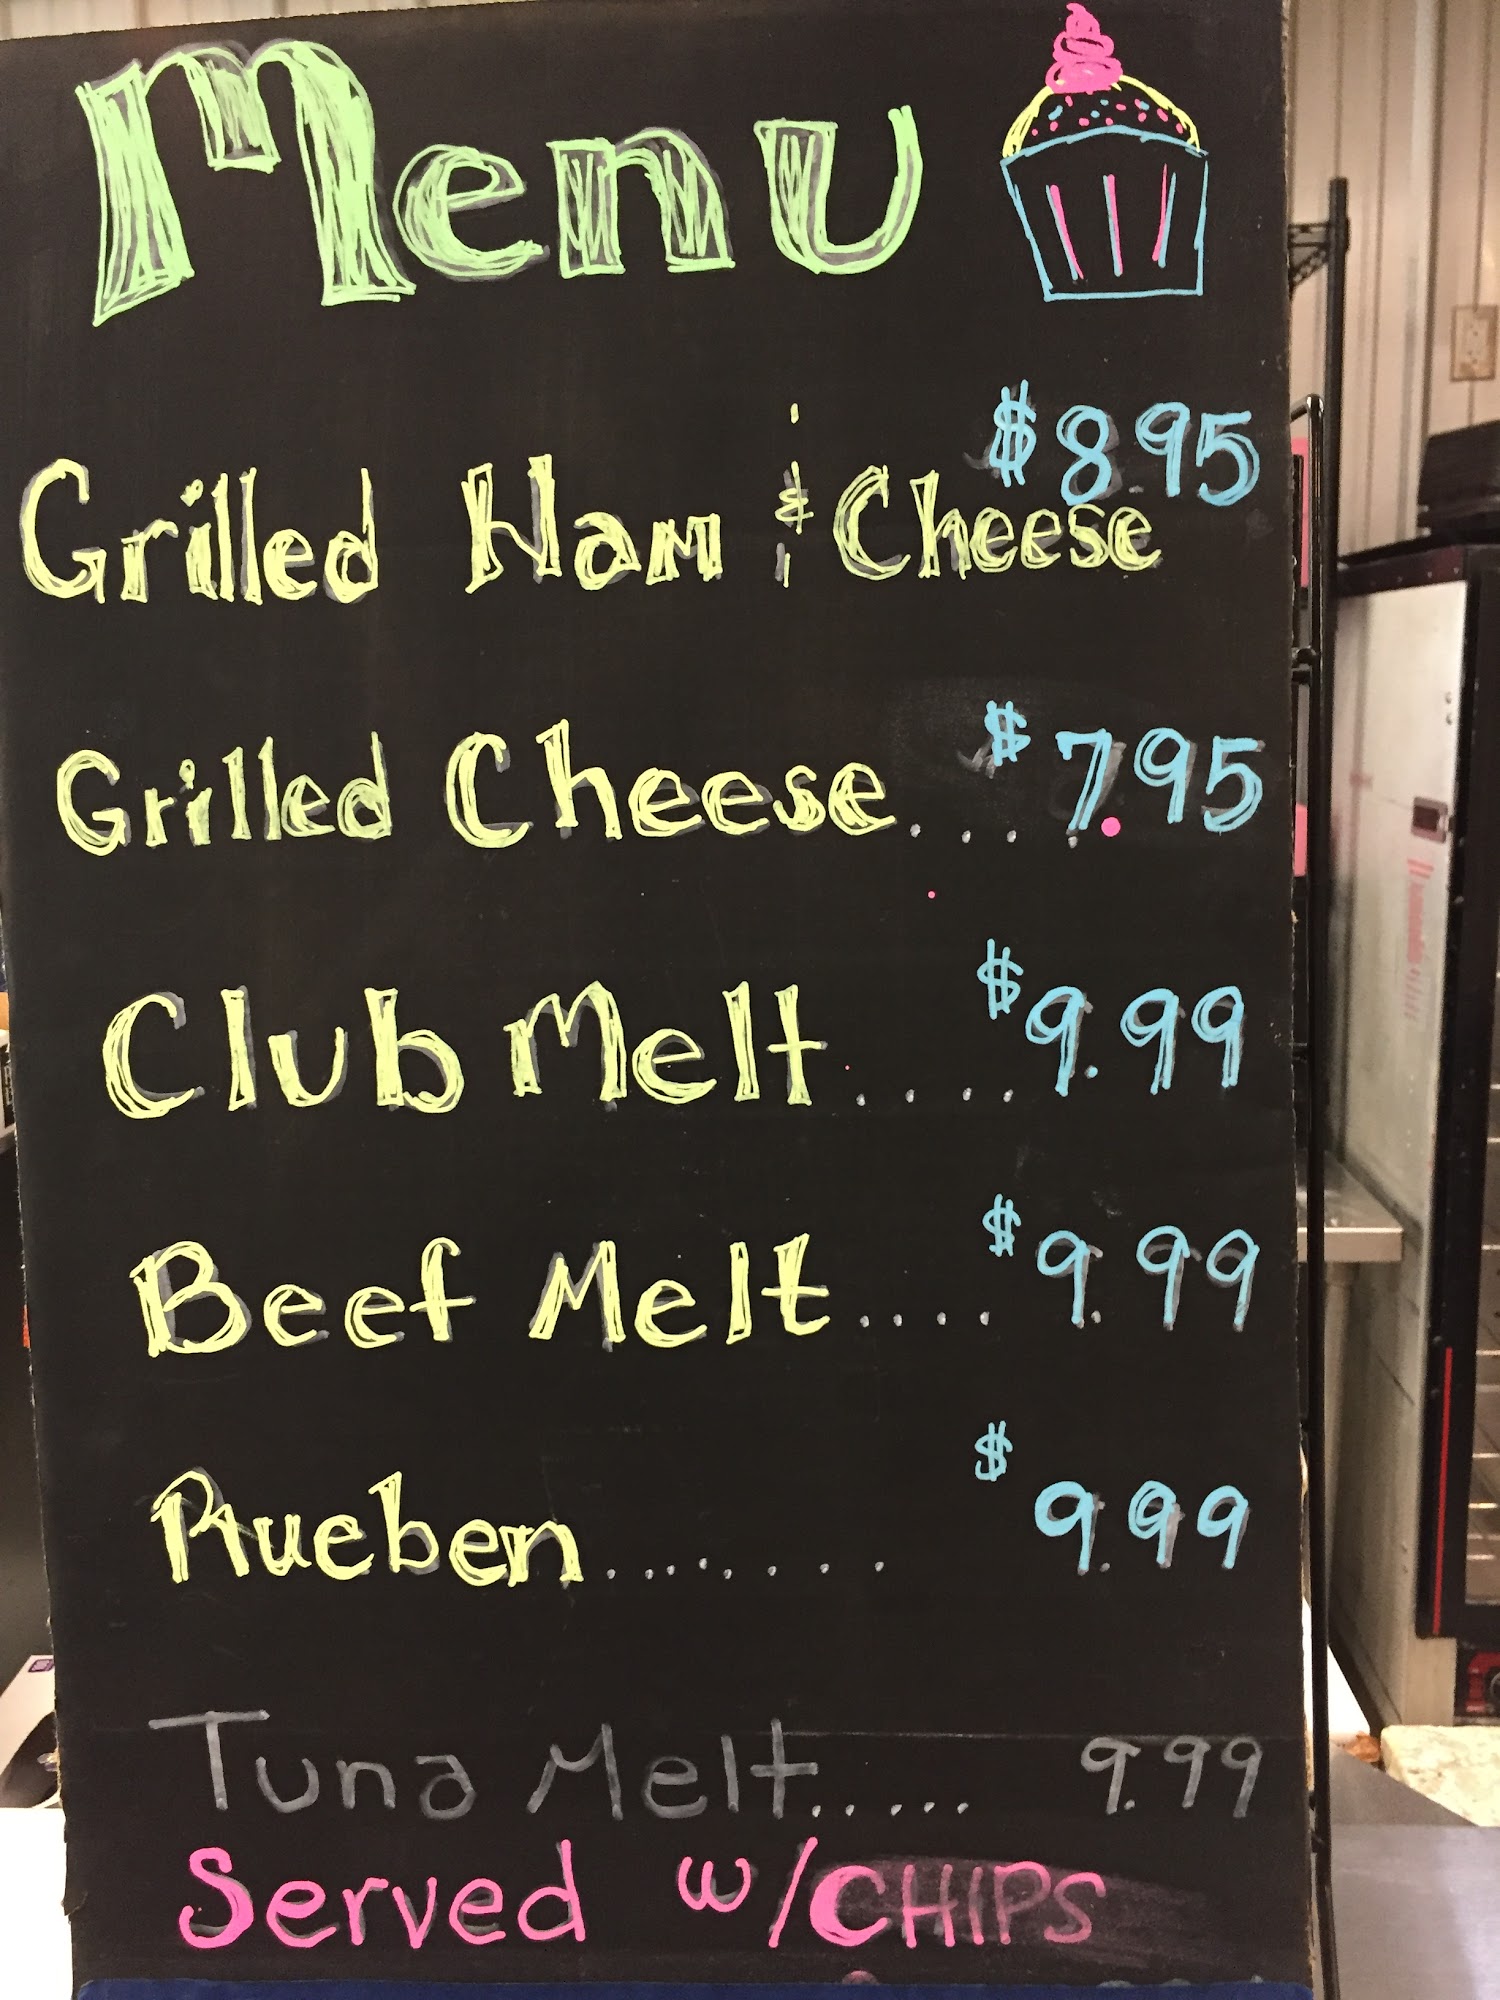 Menu
$8.95
Grilled Ham & Cheese
Grilled Cheese.... $7.95
Club Melt.... $9.99
Beef Melt.... $9.99
Rueben........ $9.99
Tuna Melt...... 9.99
Served w/CHIPS